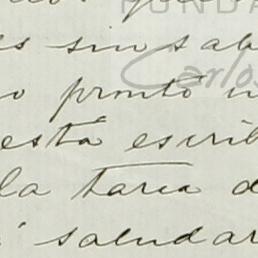 FUNDA
es sin sab
Carlos
o pronto u
está escrib
la tarea d
saludar